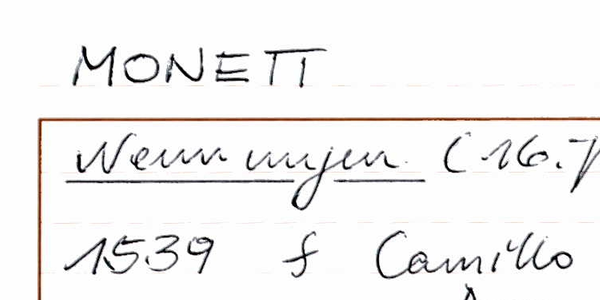 MONETT
Nennungen (16.
1539 f Camillo